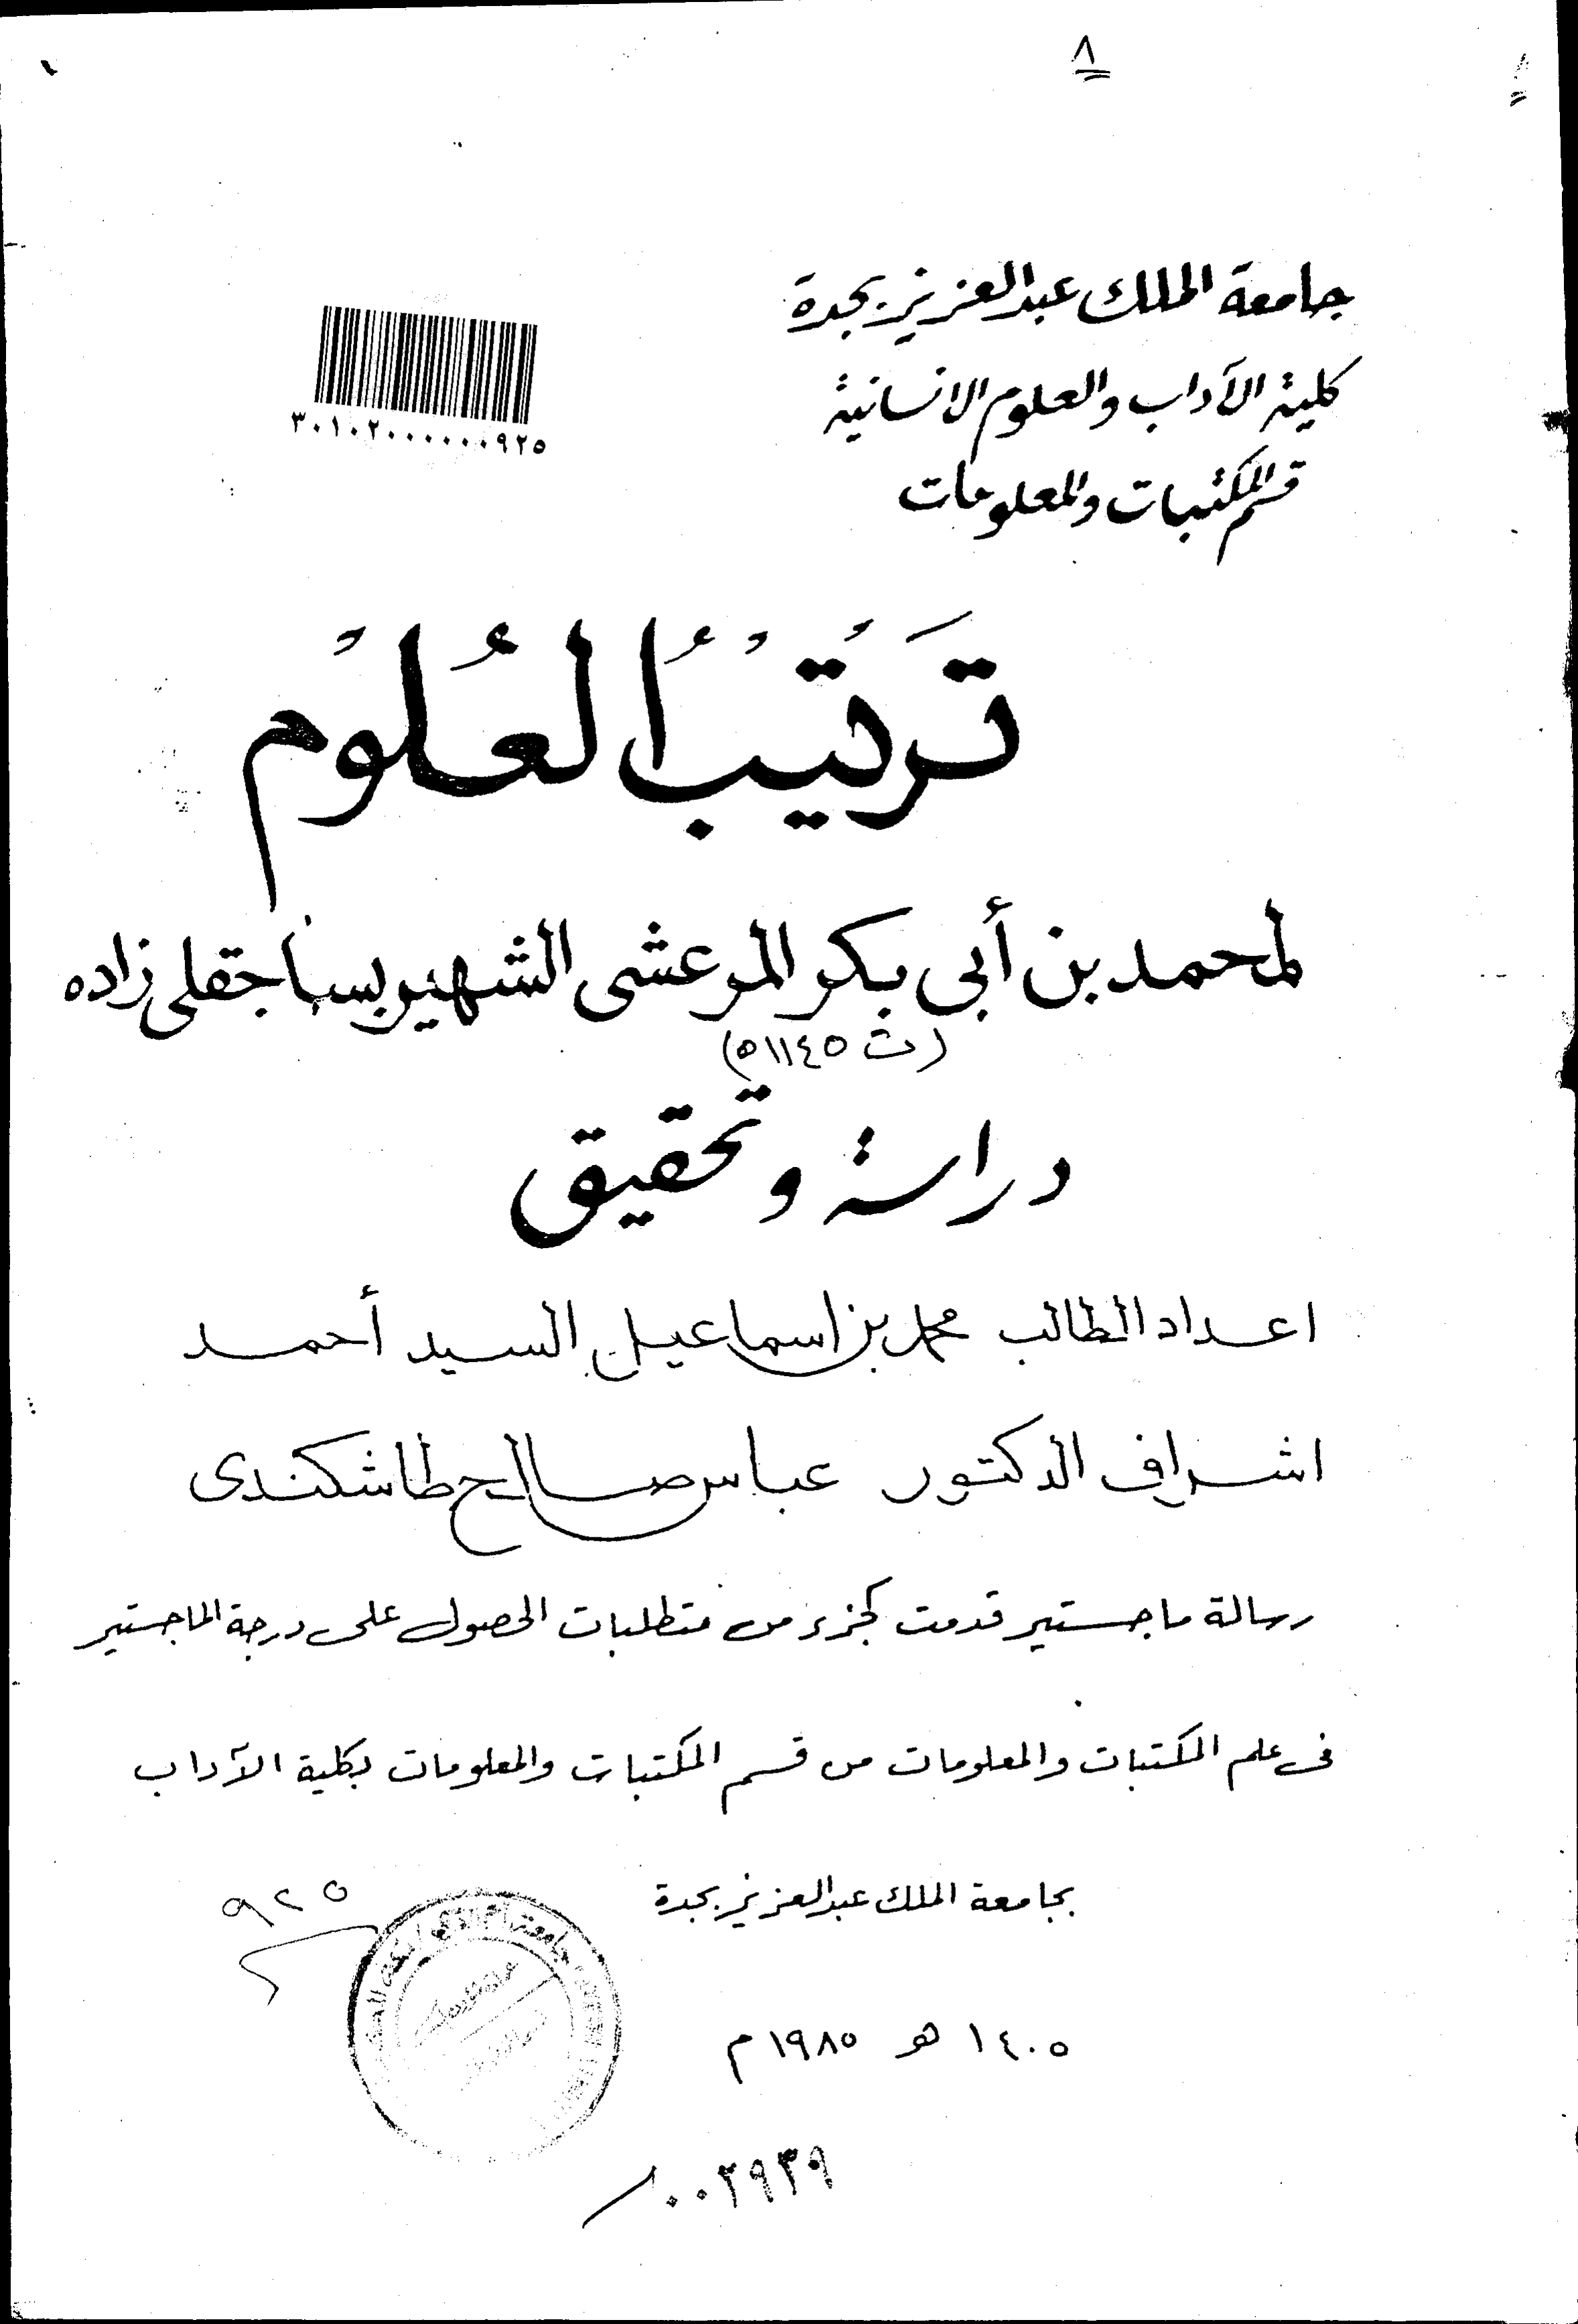 ٨
جامعة الملك عبدالعزيز بجدة
كلية الآداب والعلوم الانسانية
قسم المكتبات والمعلومات
٣٠١٠٢٠٠٠٠٠٠٩٢٥
تَرتيبُ العُلُوم
لمحمد بن أبى بكر المرعشى الشهير بساجقلى زاده
(ت ١١٤٥ ه)
دراسة وتحقيق
اعداد الطالب محمد بن اسماعيل السيد أحمد
اشراف الدكتور عباس صالح طاشكندى
رسالة ماجستير قدمت كجزء من متطلبات الحصول على درجة الماجستير
فى علم المكتبات والمعلومات من قسم المكتبات والمعلومات بكلية الآداب
بجامعة الملك عبدالعزيز بجدة
٩٢٥
١٤٠٥ هـ ١٩٨٥ م
٠٠٢٩٣٩